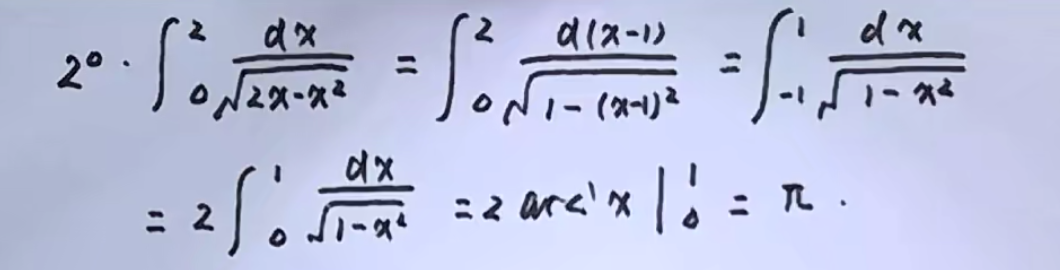 2° · ∫₀² dx/√(2x-x²) = ∫₀² d(x-1)/√(1-(x-1)²) = ∫₋₁¹ dx/√(1-x²)
= 2 ∫₀¹ dx/√(1-x²) = 2 arc x |₀¹ = π .